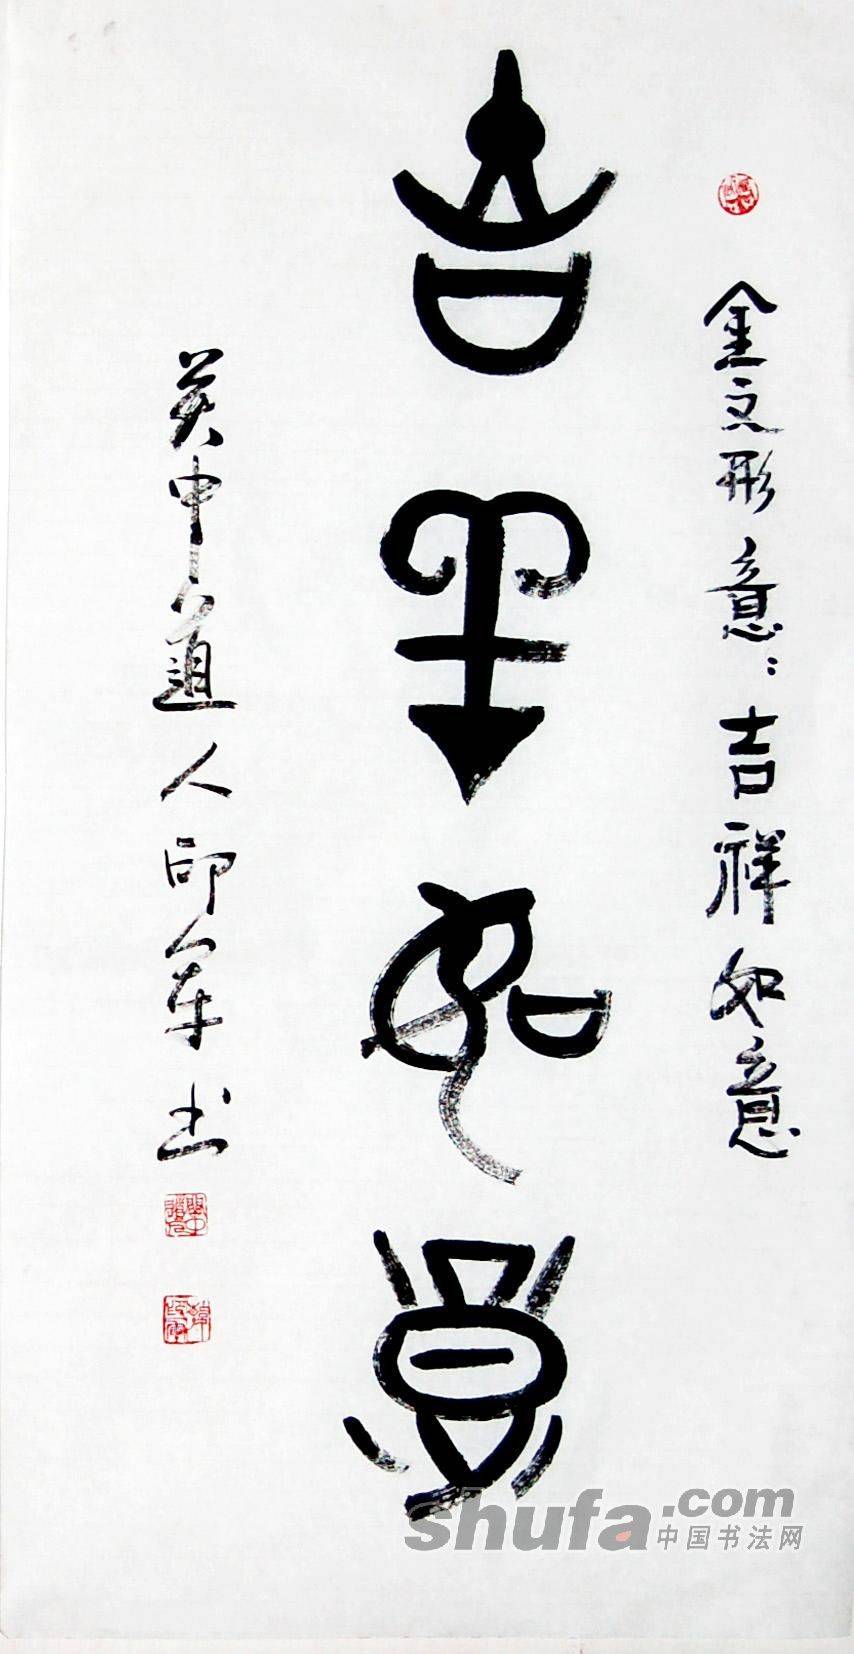 金文形意：吉祥如意
吉羊如意
关中道人印军书
shufa.com
中国书法网